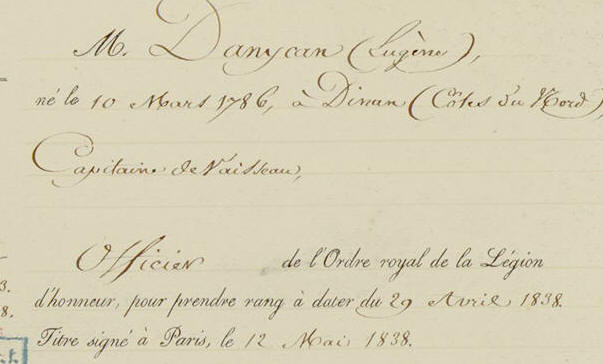 M. Danycan (Eugène),
né le 10 Mars 1786, à Dinan (Côtes du Nord),
Capitaine de Vaisseau,
Officier de l'Ordre royal de la Légion
3.
d'honneur, pour prendre rang à dater du 29 Avril 1838.
8.
Titre signé à Paris, le 12 Mai 1838.